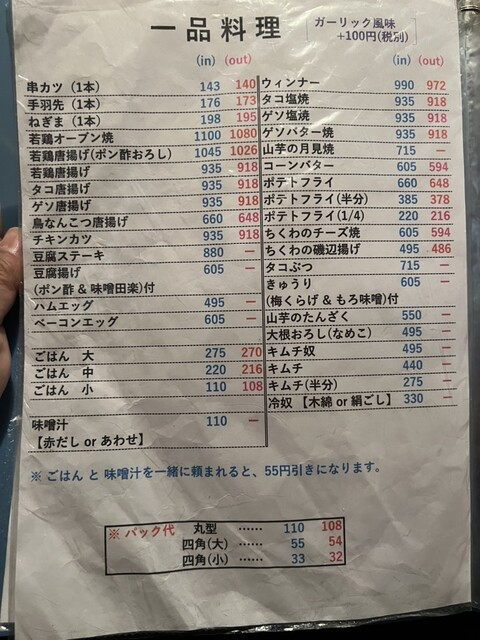 一品料理
ガーリック風味
+100円(税別)
(in) (out)
串カツ（1本） 143 140
手羽先（1本） 176 173
ねぎま（1本） 198 195
若鶏オーブン焼 1100 1080
若鶏唐揚げ(ポン酢おろし) 1045 1026
若鶏唐揚げ 935 918
タコ唐揚げ 935 918
ゲソ唐揚げ 935 918
鳥なんこつ唐揚げ 660 648
チキンカツ 935 918
豆腐ステーキ 880 ―
豆腐揚げ 605 ―
(ポン酢 & 味噌田楽)付
ハムエッグ 495 ―
ベーコンエッグ 605 ―
ごはん 大 275 270
ごはん 中 220 216
ごはん 小 110 108
味噌汁 110 ―
【赤だし or あわせ】
(in) (out)
ウィンナー 990 972
タコ塩焼 935 918
ゲソ塩焼 935 918
ゲソバター焼 935 918
山芋の月見焼 715 ―
コーンバター 605 594
ポテトフライ 660 648
ポテトフライ(半分) 385 378
ポテトフライ(1/4) 220 216
ちくわのチーズ焼 605 594
ちくわの磯辺揚げ 495 486
タコぶつ 715 ―
きゅうり 605 ―
(梅くらげ & もろ味噌)付
山芋のたんざく 550 ―
大根おろし(なめこ) 495 ―
キムチ奴 495 ―
キムチ 440 ―
キムチ(半分) 275 ―
冷奴 【木綿 or 絹ごし】 330 ―
※ ごはん と 味噌汁を一緒に頼まれると、55円引きになります。
※ パック代 丸型 …… 110 108
四角(大) …… 55 54
四角(小) …… 33 32